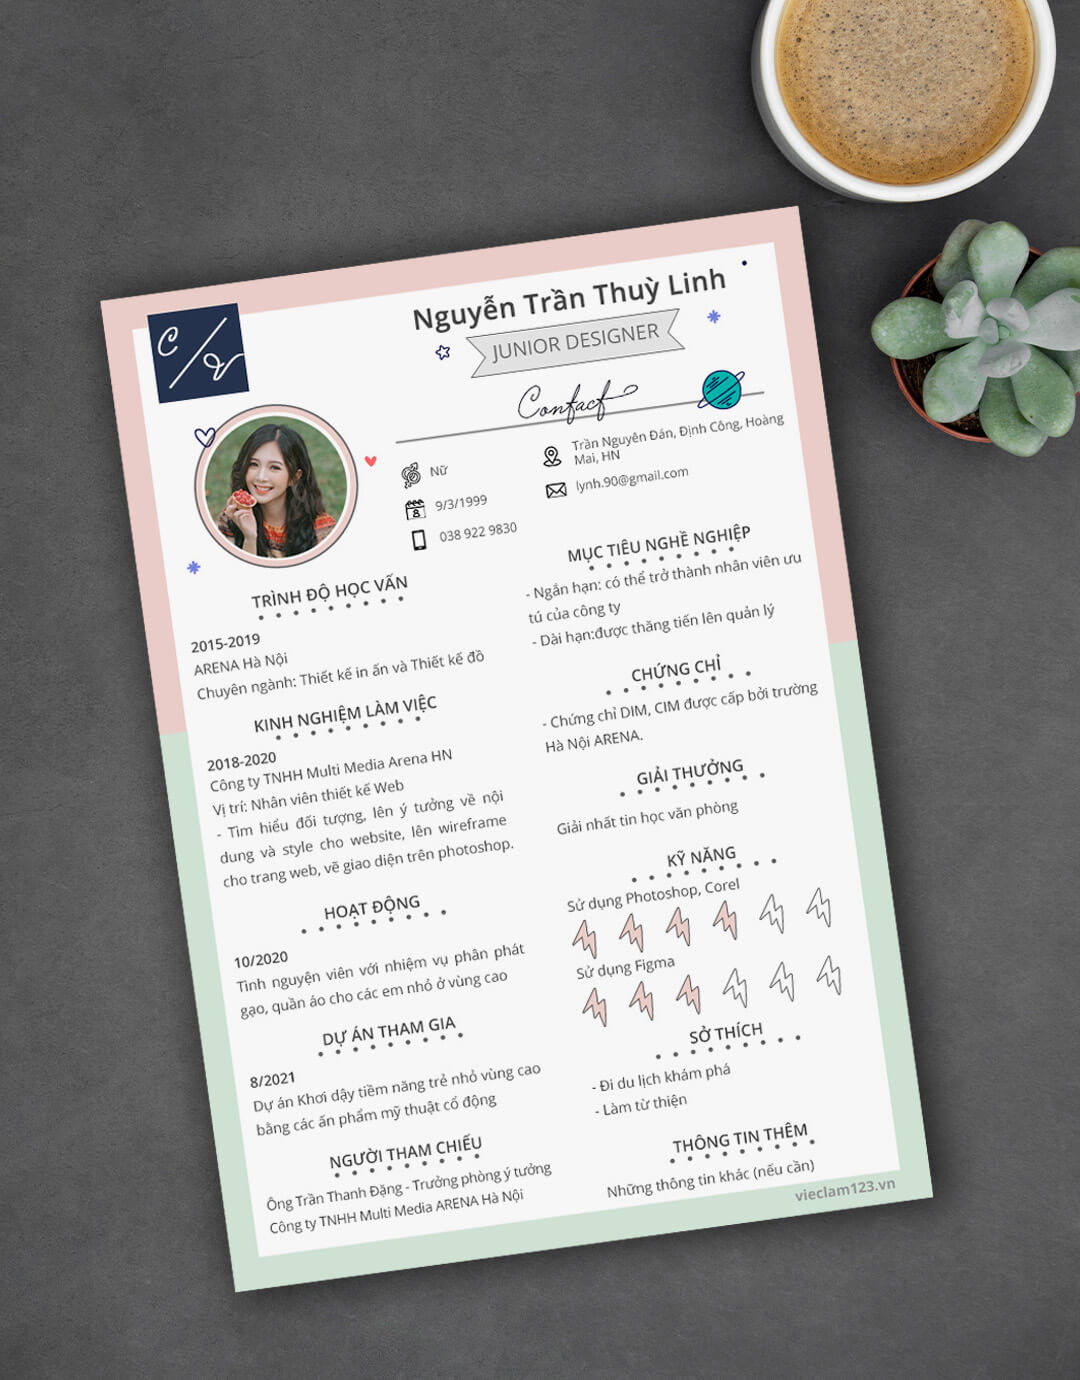 C/V
Nguyễn Trần Thuỳ Linh
JUNIOR DESIGNER
Contact
Nữ
9/3/1999
038 922 9830
Trần Nguyên Đán, Định Công, Hoàng
Mai, HN
lynh.90@gmail.com
TRÌNH ĐỘ HỌC VẤN
2015-2019
ARENA Hà Nội
Chuyên ngành: Thiết kế in ấn và Thiết kế đồ
KINH NGHIỆM LÀM VIỆC
2018-2020
Công ty TNHH Multi Media Arena HN
Vị trí: Nhân viên thiết kế Web
- Tìm hiểu đối tượng, lên ý tưởng về nội
dung và style cho website, lên wireframe
cho trang web, vẽ giao diện trên photoshop.
HOẠT ĐỘNG
10/2020
Tình nguyện viên với nhiệm vụ phân phát
gạo, quần áo cho các em nhỏ ở vùng cao
DỰ ÁN THAM GIA
8/2021
Dự án Khơi dậy tiềm năng trẻ nhỏ vùng cao
bằng các ấn phẩm mỹ thuật cổ động
NGƯỜI THAM CHIẾU
Ông Trần Thanh Đặng - Trưởng phòng ý tưởng
Công ty TNHH Multi Media ARENA Hà Nội
MỤC TIÊU NGHỀ NGHIỆP
- Ngắn hạn: có thể trở thành nhân viên ưu
tú của công ty
- Dài hạn:được thăng tiến lên quản lý
CHỨNG CHỈ
- Chứng chỉ DIM, CIM được cấp bởi trường
Hà Nội ARENA.
GIẢI THƯỞNG
Giải nhất tin học văn phòng
KỸ NĂNG
Sử dụng Photoshop, Corel
Sử dụng Figma
SỞ THÍCH
- Đi du lịch khám phá
- Làm từ thiện
THÔNG TIN THÊM
Những thông tin khác (nếu cần)
vieclam123.vn